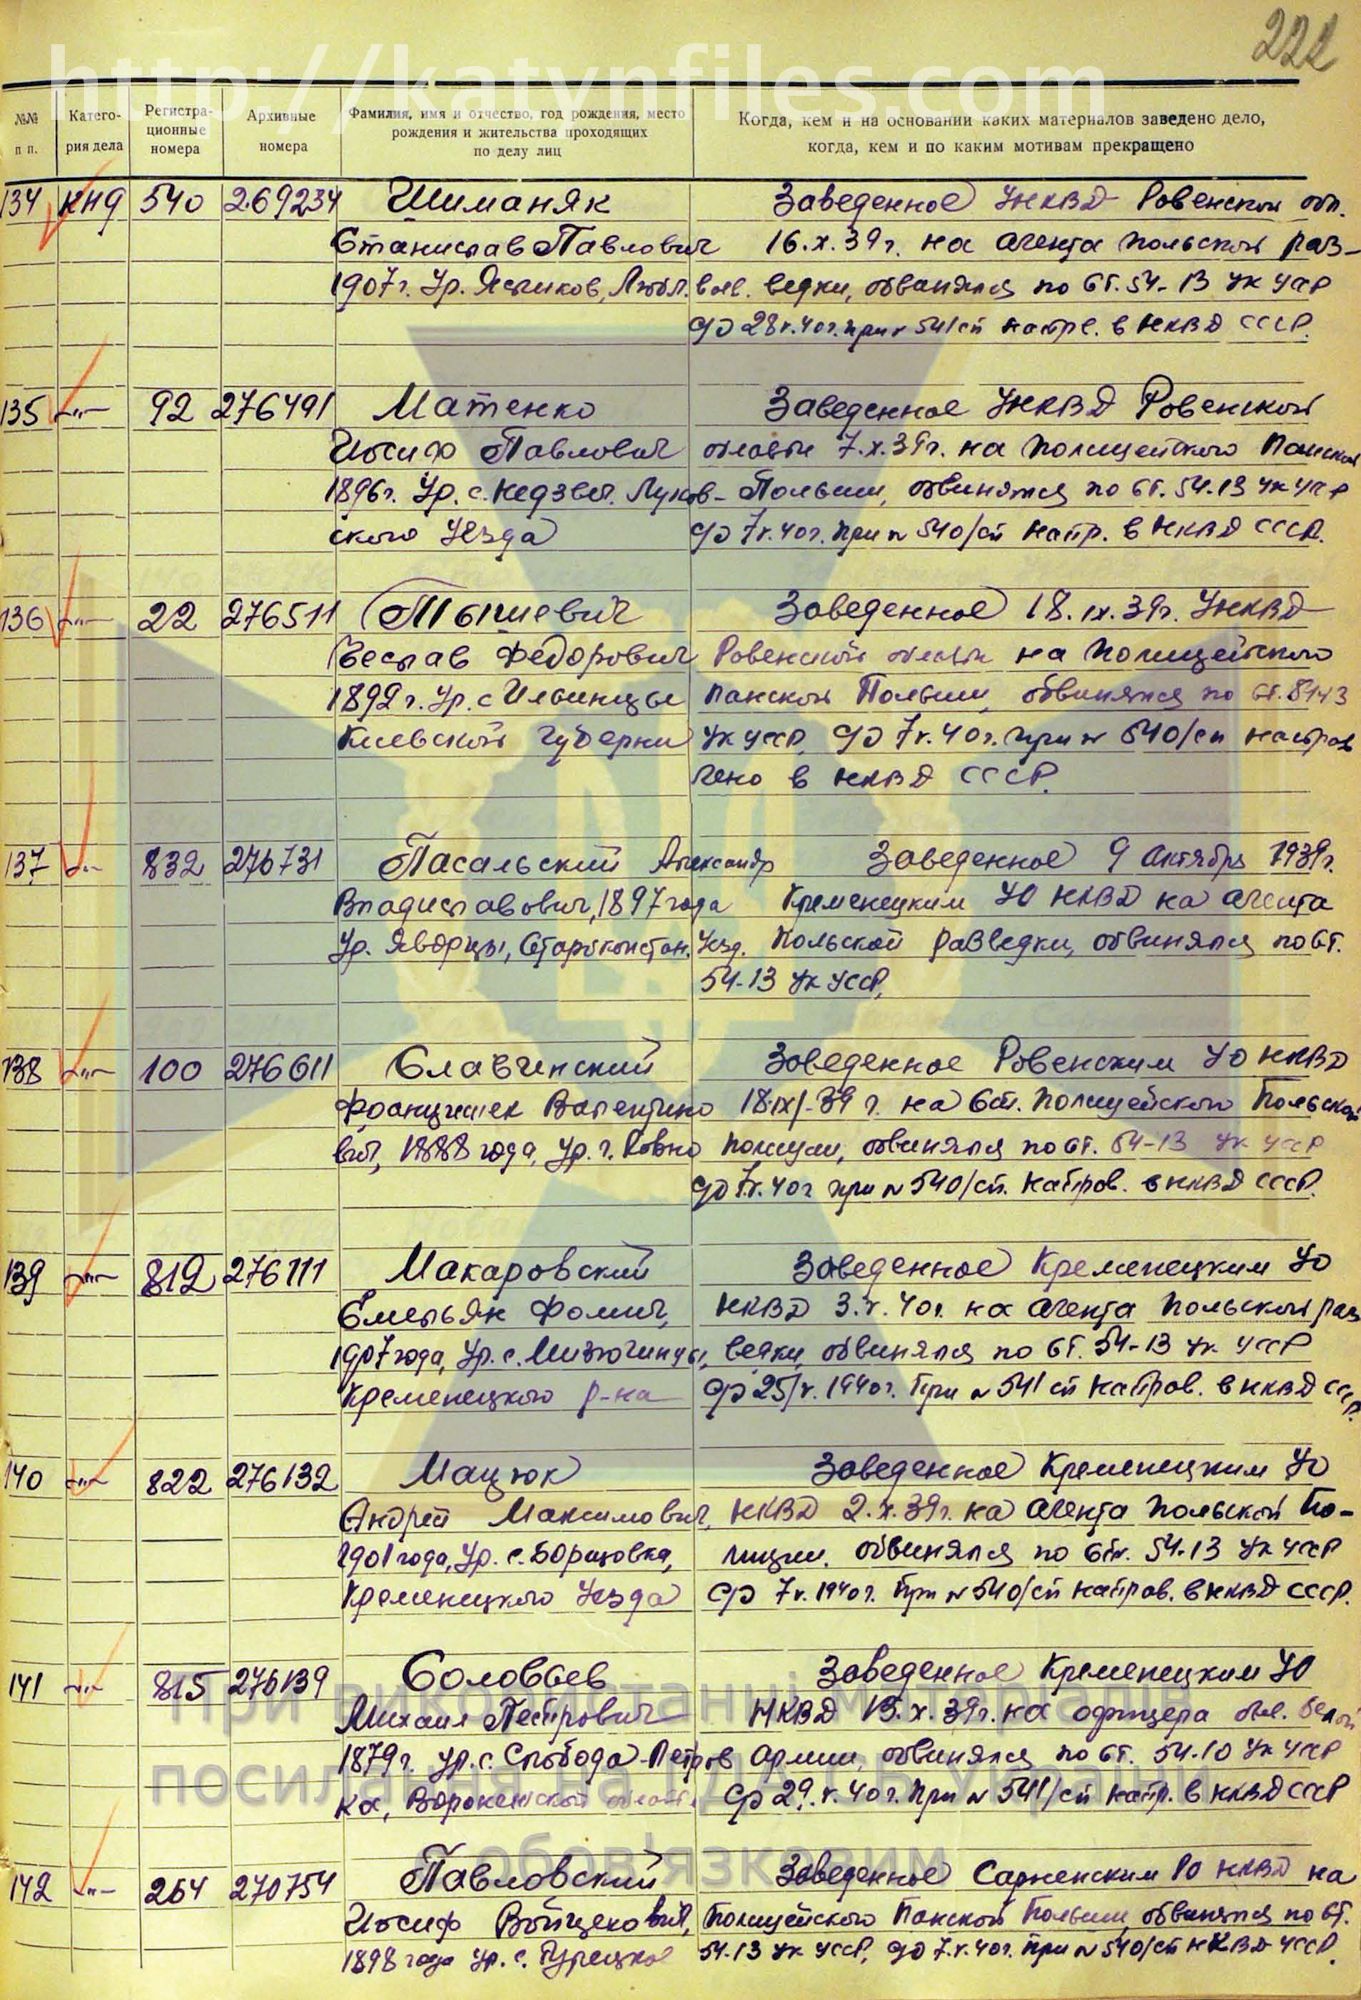 222
http://katynfiles.com
№№ п п.
Катего- рия дела
Регистра- ционные номера
Архивные номера
Фамилия, имя и отчество, год рождения, место рождения и жительства проходящих по делу лиц
Когда, кем и на основании каких материалов заведено дело, когда, кем и по каким мотивам прекращено
134 КНД 540 269234 Шиманяк Заведенное УНКВД Ровенской обл.
Станислав Павлович 16.X.39г. на агента польской раз-
1907г. Ур. Люблин. воев. ведки, обвинялся по ст. 54-13 УК УССР
28 V.40г. при № 541/сп напр. в НКВД СССР.
135 —"— 92 276491 Матенко Заведенное УНКВД Ровенской
Иосиф Павлович области 7.X.39г. на полицейского Панской
1896г. Ур. с. Луков- Польши, обвинялся по ст. 54-13 УК УССР
ского уезда 7V.40г. при № 540/сп напр. в НКВД СССР.
136 —"— 22 276511 Заведенное 18.IX.39г. УНКВД
Чеслав Федорович Ровенской области на полицейского
1892г. Ур. с Ильинцы панской Польши, обвинялся по ст.
Киевской губернии УК УССР, 7V.40г. при № 540/сп направ
лено в НКВД СССР.
137 —"— 832 276731 Пасальский Александр Заведенное 9 октября 1939г.
Владиславович, 1897 года Кременецким УО НКВД на агента
Ур. Яворцы, Староконстан. уезд. польской разведки, обвинялся по ст.
54-13 УК УССР,
138 —"— 100 276611 Славчинский Заведенное Ровенским УО НКВД
Францишек Валентино 18/IX-39 г. на ст. полицейского Польской
вич, 1888 года, ур. г. Ровно полиции, обвинялся по ст. 54-13 УК УССР
7.V.40г при № 540/сп. направ. в НКВД СССР.
139 —"— 812 276111 Макаровский Заведенное Кременецким УО
Емельян Фомич, НКВД 3.X.40г. на агента польской раз
1907 года, Ур. с. Мизюгинцы, ведки, обвинялся по ст. 54-13 УК УССР
Кременецкого р-на 25/V.1940г. При № 541 сп направ. в НКВД СССР.
140 —"— 822 276132 Мацюк Заведенное Кременецким УО
Андрей Максимович, НКВД 2.X.39г. на агента польской По-
1901 года, Ур. с. Борщовка, лиции, обвинялся по ст. 54-13 УК УССР
Кременецкого уезда 7V.1940г. При № 540/сп направ. в НКВД СССР.
141 —"— 815 276139 Соловьев Заведенное Кременецким УО
Михаил Петрович НКВД 15.X.39г. на офицера бел. белой
1879г. ур. с. Слобода-Петров армии, обвинялся по ст. 54-10 УК УССР
ка, Воронежской области 29.V.40г. При № 541/сп напр. в НКВД СССР
142 —"— 264 270754 Павловский Заведенное Сарненским РО НКВД на
Иосиф Войцехович, полицейского Панской Польши, обвинялся по ст.
1898 года ур. с. Турецкое 54-13 УК УССР, 7.V.40г. при № 540/сп НКВД УССР.
При використанні матеріалів
посилання на ГДА СБ України
є обов'язковим